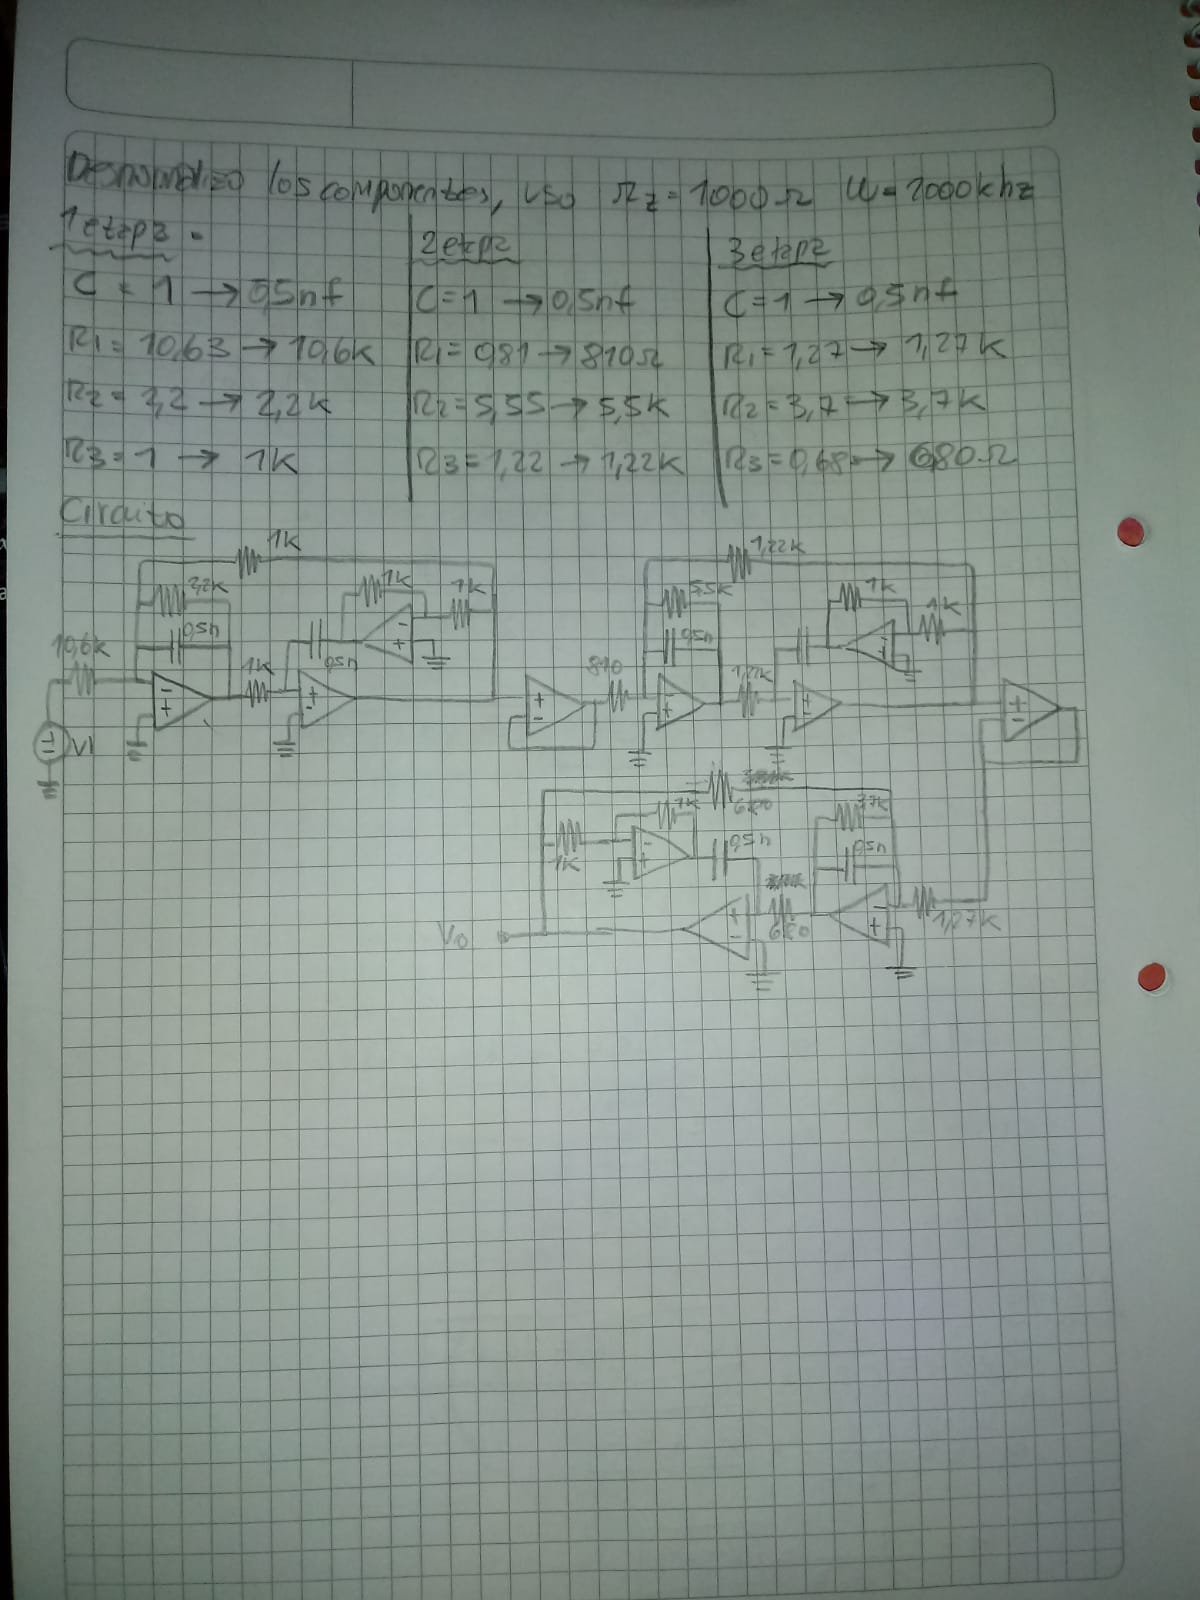 Desnormalizo los componentes, uso Ωz = 1000Ω W = 2000khz
1 etapa
C = 1 → 0,5nf
R1 = 10,63 → 10,6k
R2 = 2,2 → 2,2k
R3 = 1 → 1k
2 etapa
C = 1 → 0,5nf
R1 = 0,81 → 810Ω
R2 = 5,55 → 5,5k
R3 = 1,22 → 1,22k
3 etapa
C = 1 → 0,5nf
R1 = 1,27 → 1,27k
R2 = 3,7 → 3,7k
R3 = 0,68 → 680Ω
Circuito
1k 1,22k
2,2k 1k 1k 5,5k 1k 1k
0,5n 0,5n
10,6k 1k 0,5n 810 1,22k
VI
680
1k 3,7k
1k 0,5n 0,5n
680 1,27k
Vo